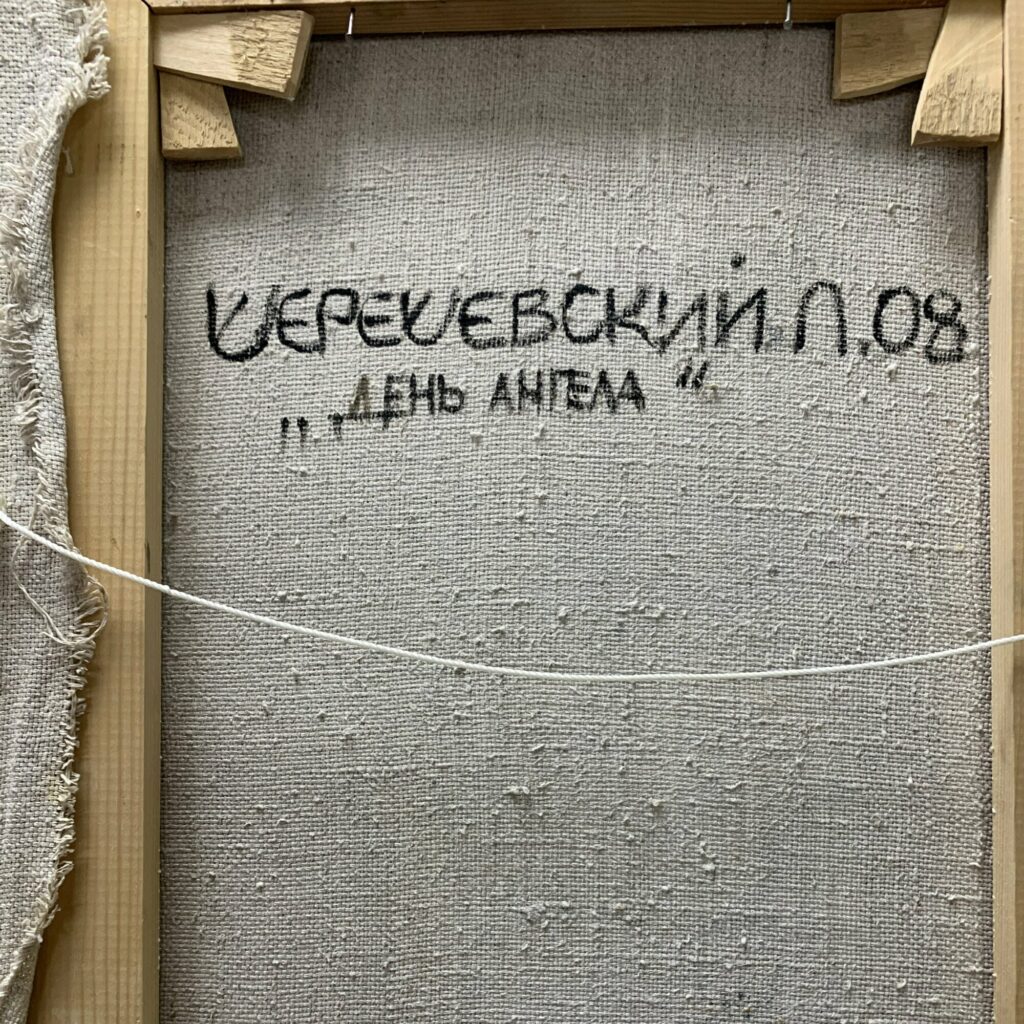 ШЕРЕШЕВСКИЙ Л.08
„ДЕНЬ АНГЕЛА“